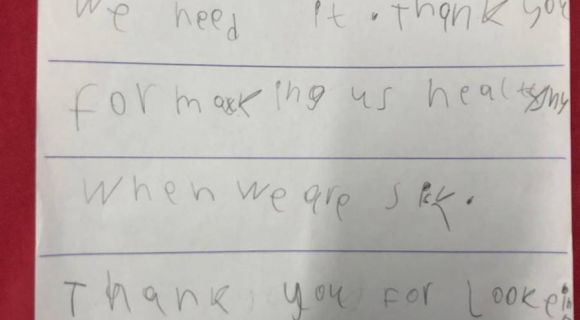 We need it. Thank you
for making us healthy
when we are sik.
Thank you for Lookein